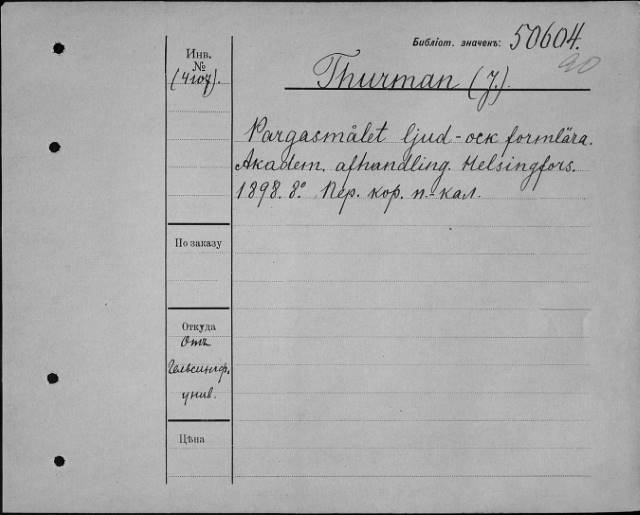 Библіот. значекъ: 50604.
20
Инв.
№
(4107).
Thurman (J.).
Pargasmålet ljud-ock formlära.
Akadem. afhandling. Helsingfors.
1898. 8° Пер. кор. п.-кал.
По заказу
Откуда
Отъ
Гельсингф.
унив.
Цѣна